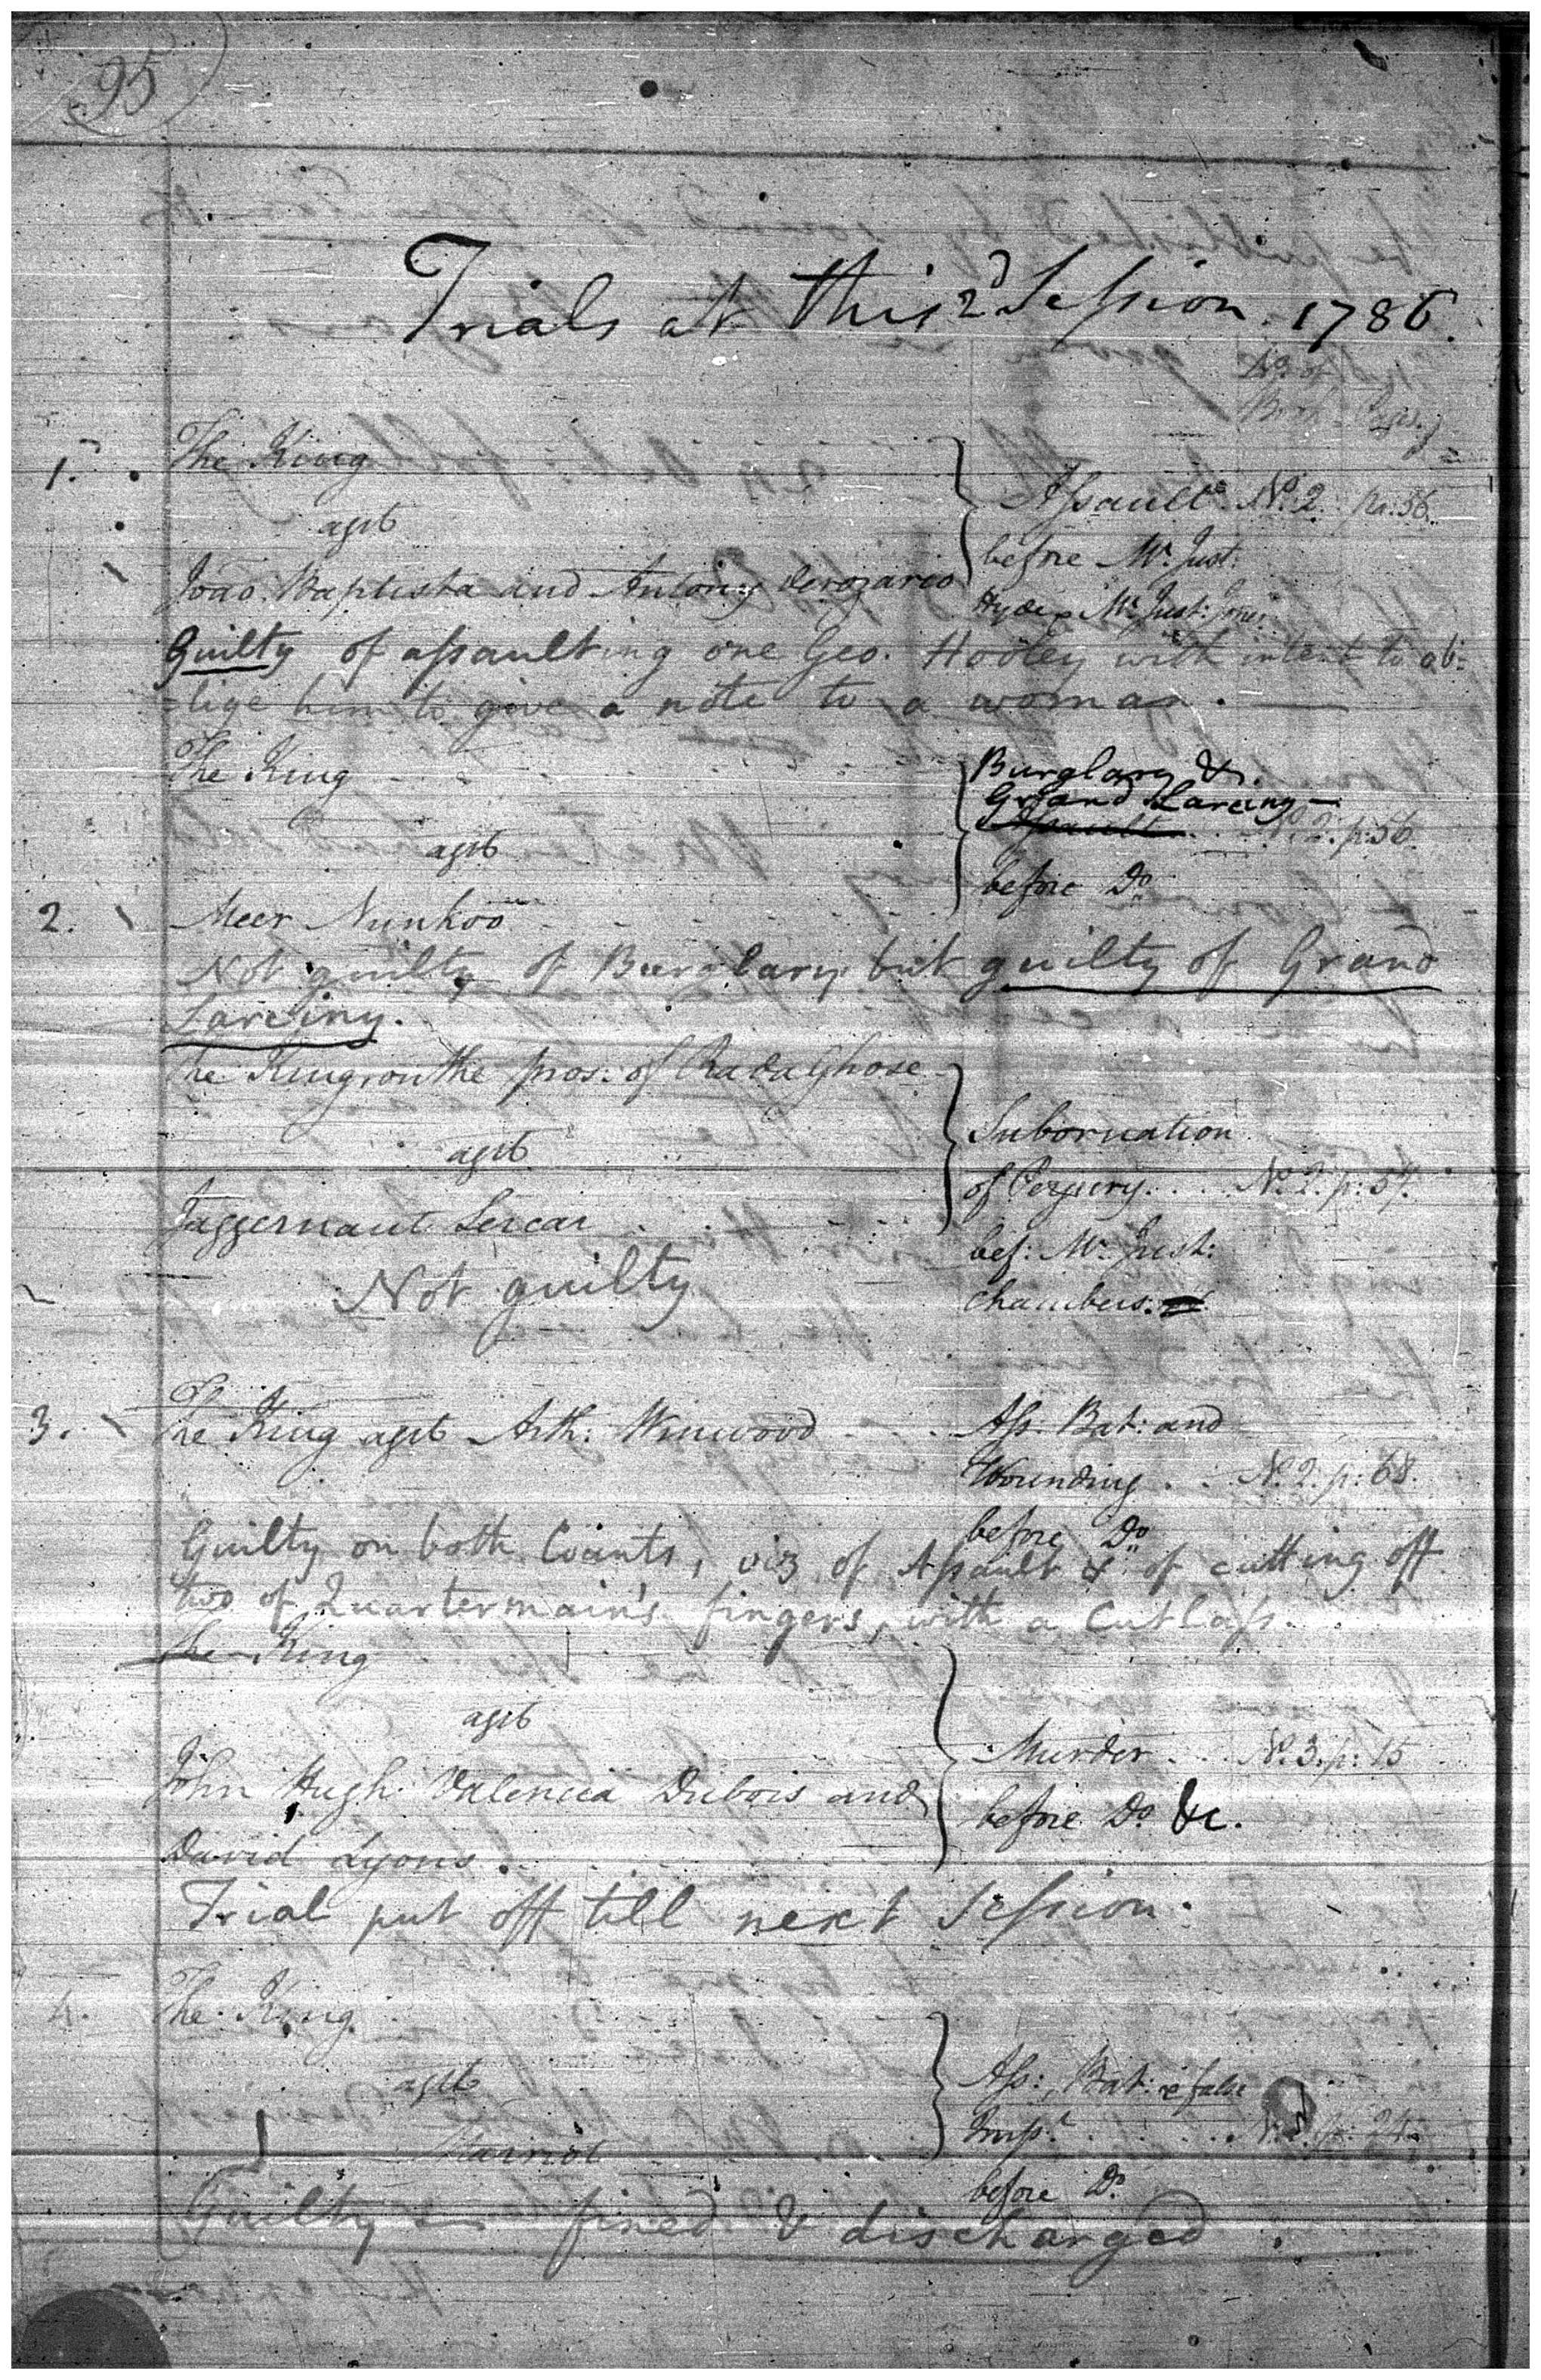 95
Trials at this 2d Session 1786.
No. of
Book Pages.
1. The King
agst
Joao Baptista and Antony Derozario
Assault No. 2. pa: 56.
before Mr. Just:
Hyde & Mr. Just: Jones
Guilty of assaulting one Geo. Hooley with intent to ob=
=lige him to give a note to a woman.
The King
agst
2. Meer Nunkoo
Burglary &
Grand Larciny
Assault No. 2. p: 56
before Do
Not guilty of Burglary but guilty of Grand
Larciny.
The King on the pros: of Rada Ghose
agst
Jaggernaut Sercar
Subornation
of Perjury. No. 2. p: 57.
bef: Mr. Just:
Chambers.
Not guilty
3. The King agst Arth: Winwood
Ass: Bat: and
Wounding No. 2. p: 68
before Do
Guilty on both Counts, viz of Assault & of cutting off
two of Quartermain's fingers, with a Cutlass.
The King
agst
John Hugh Valencia Dubois and
David Lyons.
Murder No. 3. p: 15
before Do &c.
Trial put off till next Session.
4. The King
agst
Ass: Bat: & false
Imps.t
before Do
Guilty fined & discharged.